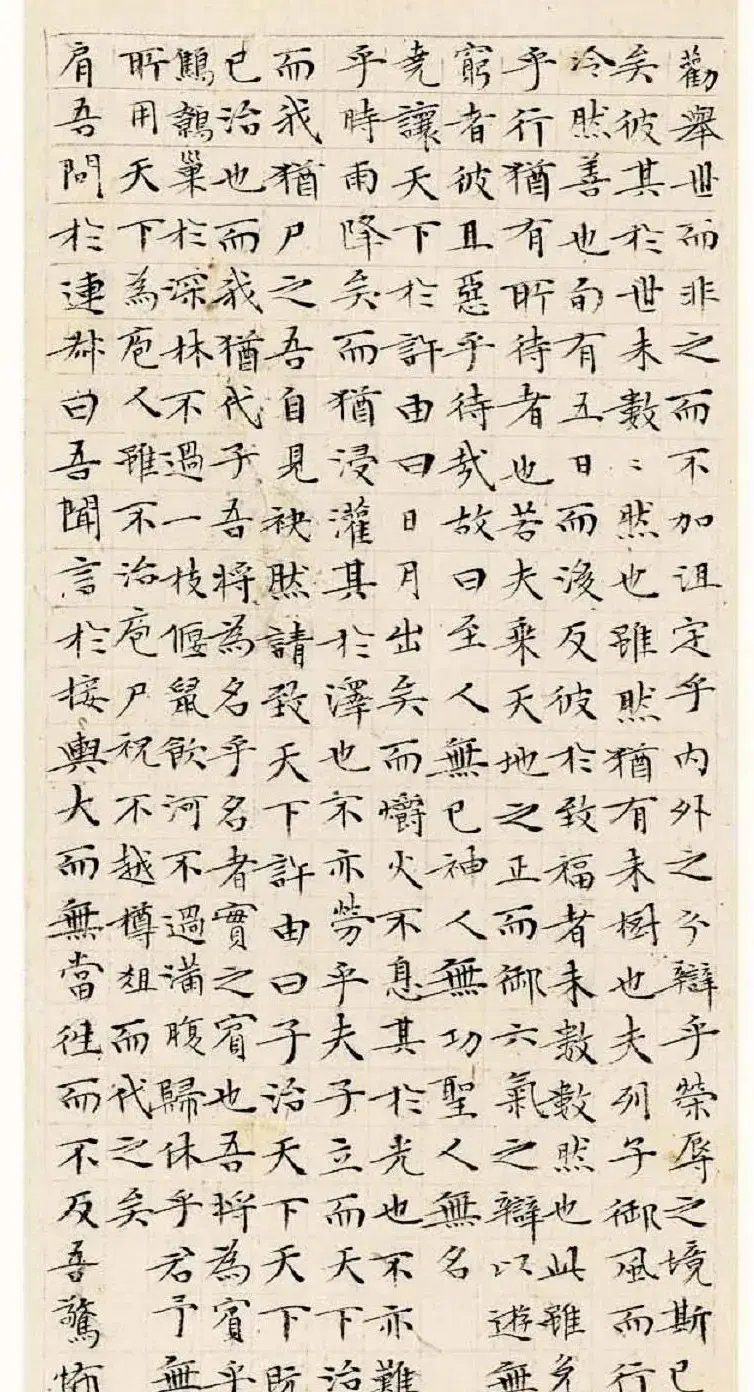 勸舉世而非之而不加沮定乎內外之分辯乎榮辱之境斯已
矣彼其於世未數〻然也雖然猶有未樹也夫列子御風而行
冷然善也旬有五日而後反彼於致福者未數數然也此雖免
乎行猶有所待者也若夫乘天地之正而御六氣之辯以遊無
窮者彼且惡乎待哉故曰至人無已神人無功聖人無名
堯讓天下於許由曰日月出矣而爝火不息其於光也不亦難
乎時雨降矣而猶浸灌其於澤也不亦勞乎夫子立而天下治
而我猶尸之吾自見袂然請致天下許由曰子治天下天下既
已治也而我猶代子吾將為名乎名者實之賓也吾將為賓乎
鷦鷯巢於深林不過一枝偃鼠飲河不過滿腹歸休乎君予無
所用天下為庖人雖不治庖尸祝不越樽俎而代之矣
肩吾問於連叔曰吾聞言於接輿大而無當往而不反吾驚怖